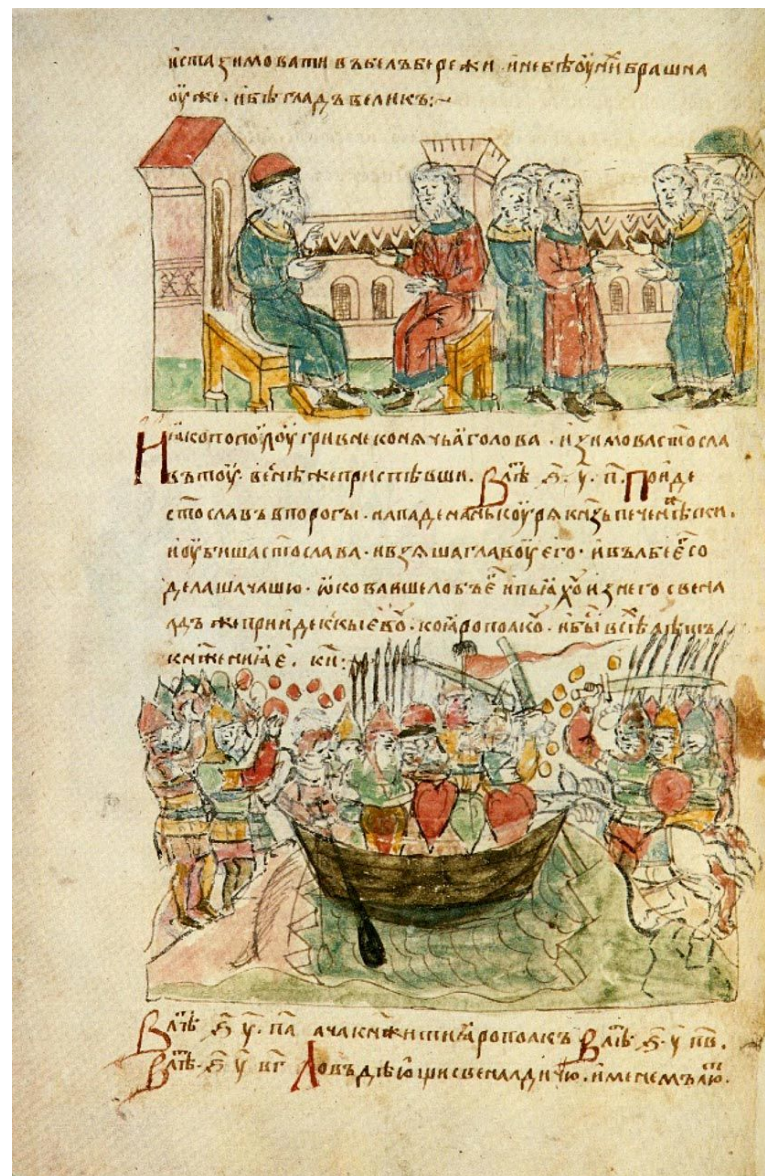 и ста зимовати въ Белъбережи . и не бѣ оу ни брашна
оуже . и бѣ гладъ великъ :~
Н яко по полоу гривне конячьа голова . и зимова Стосла
въ тоу . весне же приспѣвши . В лѣ ҂ѕ . у . п . Поиде
Стославъ в порогы . и нападе на нь Коуря кнзь печенѣски .
и оубиша Стослава . и взяша главоу его . и въ лбе е со
делаша чашю . ѡковавше лобъ е и пьяхо из него Свена
лдъ же прииде к Кыево . ко Ярополко . и бы всѣ лѣ
княжения е . ки :
В лѣ ҂ѕ у . па ача княжити Ярополкъ В лѣ . ҂ѕ . у пв .
В лѣ . ҂ѕ у вг Ловъ дѣющи Свеналдичю . именем Лю .